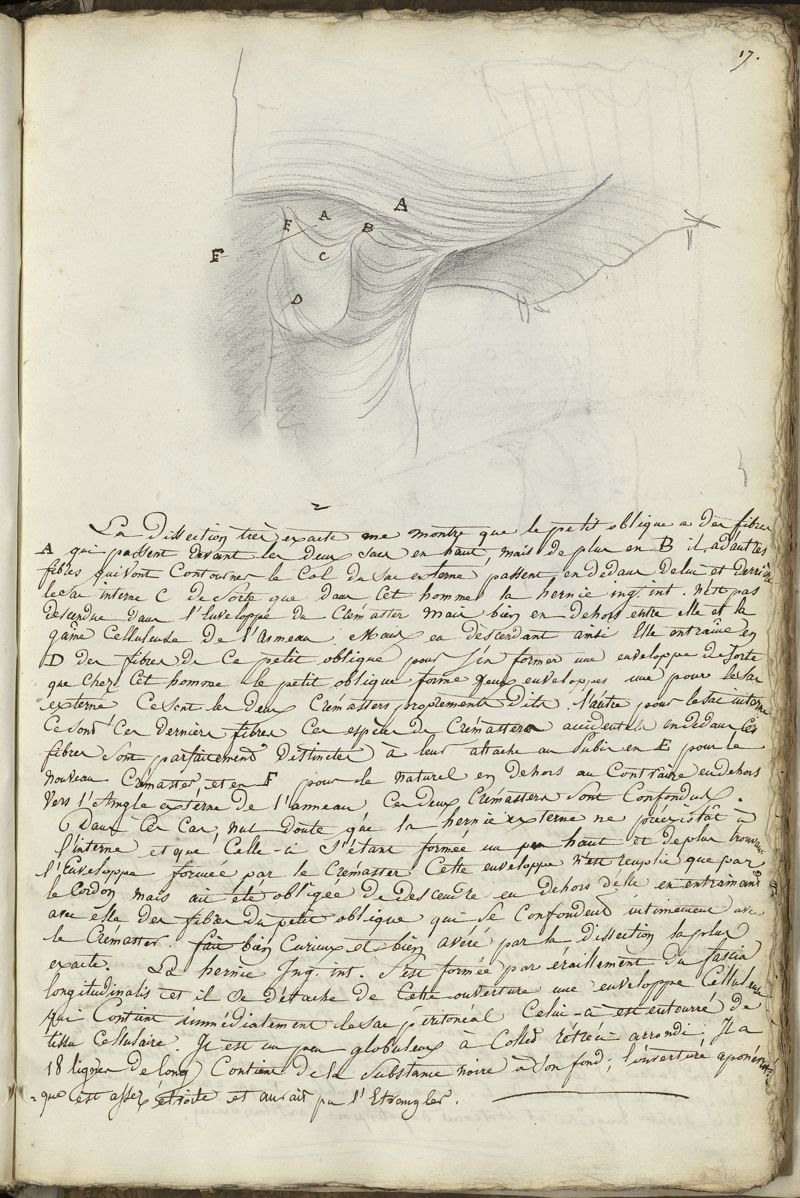 17.
A
A
E
B
F
C
D
2
La Dissection très exacte me montre que le petit oblique a des fibres
A qui passent devant les deux sacs en haut, mais de plus en B il a d'autres
fibres qui vont contourner le Col du sac externe passent en dedans de lui et derrière
le sac interne C de sorte que dans cet homme la hernie ing. int. n'est pas
descendue dans l'Enveloppe du Crémaster mais bien en dehors entre elle et la
gaîne Celluleuse de l'anneau. Mais en descendant ainsi Elle entraîne en
D des fibres de ce petit oblique pour s'en former une enveloppe de sorte
que chez cet homme le petit oblique forme deux enveloppes une pour le sac
externe ce sont les deux Crémasters proprements dits. l'autre pour le sac interne
ce sont ces dernières fibres ces espèces de Crémasters accidentels en dedans ces
fibres sont parfaitement distinctes à leur attache au Pubis en E pour le
nouveau Crémaster, et en F pour le naturel en dehors au contraire en dehors
vers l'Angle externe de l'anneau ces deux Crémasters sont confondus.
Dans ce cas, nul doute que la hernie externe ne préexistât à
l'interne et que celle-ci s'étant formée un peu haut et de plus trouvant
l'Enveloppe formée par le Crémaster cette enveloppe n'est remplie que par
le Cordon, mais ait été obligée de descendre en dehors d'elle en entrainant
avec elle des fibres du petit oblique qui se confondent intimement avec
le Crémaster. fait bien curieux et bien avéré par la dissection la plus
exacte. La hernie Ing. int. s'est formée par éraillement du fascia
longitudinalis et il se détache de cette ouverture une enveloppe Celluleuse
qui contient immédiatement le sac péritonéal Celui-ci est entouré de
tissu cellulaire. Il est un peu globuleux à Collet rétréci arrondi, Il a
18 lignes de long Contient de la substance noire à son fond; l'ouverture aponévroti-
que est assez étroite et aurait pu l'Etrangler.